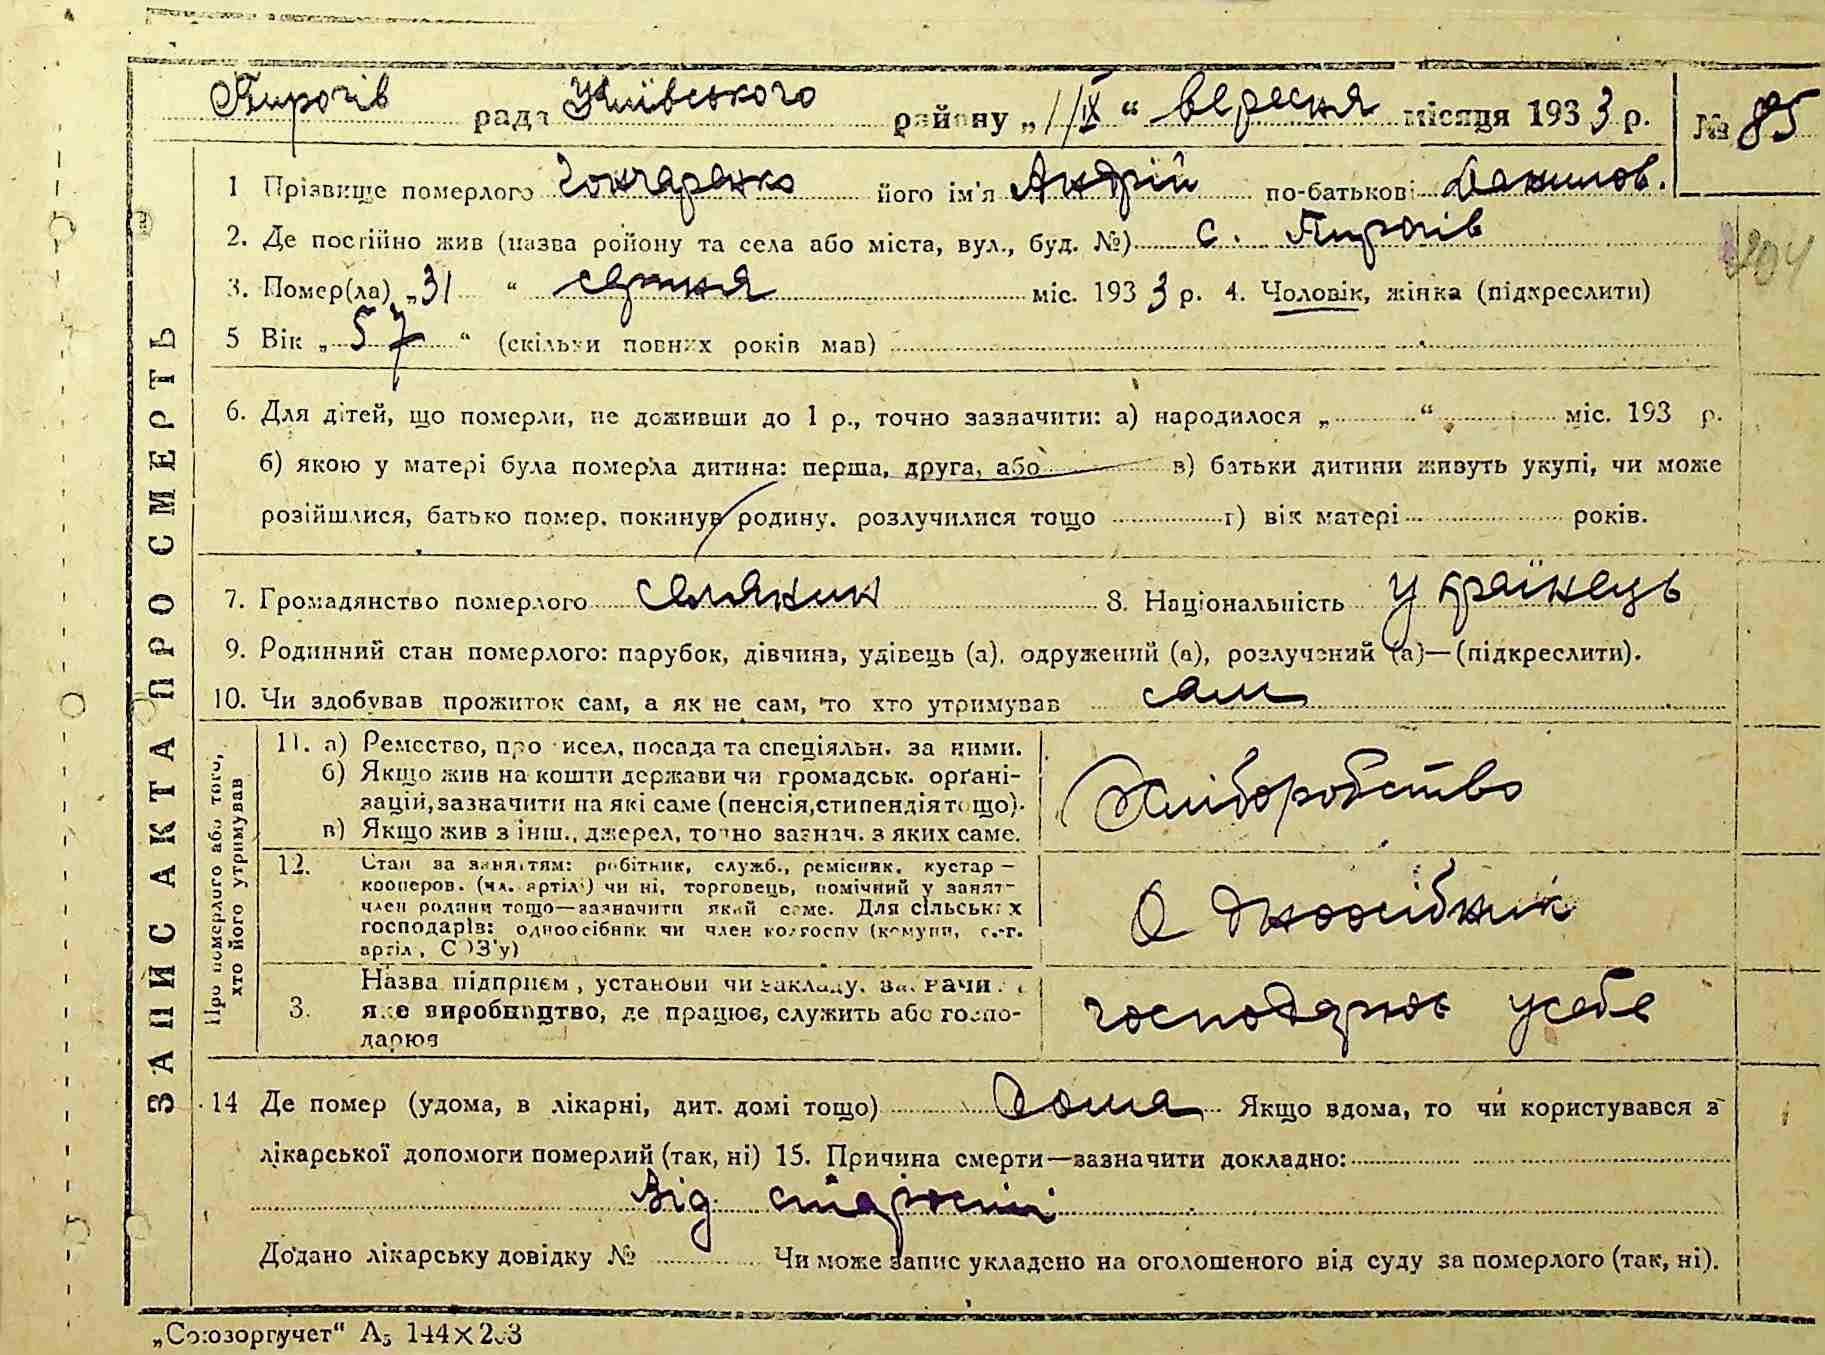 Пирогів рада Київського району „1/IX“ вересня місяця 1933 р. № 85
1 Прізвище померлого Гончаренко його ім'я Андрій по-батькові Данилов.
2. Де постійно жив (назва району та села або міста, вул., буд. №) с. Пирогів
204
3. Помер(ла) „31“ серпня міс. 1933 р. 4. Чоловік, жінка (підкреслити)
5 Вік „57“ (скільки повних років мав)
6. Для дітей, що померли, не доживши до 1 р., точно зазначити: а) народилося „ “ міс. 193 р.
б) якою у матері була померла дитина: перша, друга, або в) батьки дитини живуть укупі, чи може
розійшлися, батько помер, покинув родину, розлучилися тощо г) вік матері років.
7. Громадянство померлого селянин 8. Національність українець
9. Родинний стан померлого: парубок, дівчина, удівець (а), одружений (а), розлучений (а)—(підкреслити).
10. Чи здобував прожиток сам, а як не сам, то хто утримував сам
ЗАПИС АКТА ПРО СМЕРТЬ
Про померлого або того,
хто його утримував
11. а) Ремество, промисел, посада та спеціяльн. за ними.
б) Якщо жив на кошти держави чи громадськ. органі-
зацій, зазначити на які саме (пенсія, стипендія тощо).
в) Якщо жив з інш., джерел, точно зазнач. з яких саме.
Хліборобство
12. Стан за заняттям: робітник, служб., ремісник, кустар —
кооперов. (чл. артілі) чи ні, торговець, помічний у занят-
член родини тощо—зазначити який саме. Для сільських
господарів: одноосібник чи член колгоспу (комуни, с.-г.
артіл, СОЗ'у)
Одноосібник
3. Назва підприєм, установи чи закладу, зазначи
яке виробництво, де працює, служить або госпо-
дарює
господарює усебе
14 Де помер (удома, в лікарні, дит. домі тощо) Дома Якщо вдома, то чи користувався з
лікарської допомоги померлий (так, ні) 15. Причина смерти—зазначити докладно:
Від старости
Додано лікарську довідку № Чи може запис укладено на оголошеного від суду за померлого (так, ні).
„Союзоргучет“ А5 144×203